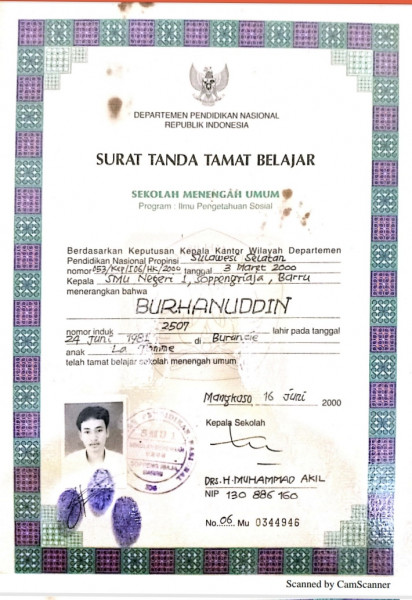 DEPARTEMEN PENDIDIKAN NASIONAL
REPUBLIK INDONESIA
SURAT TANDA TAMAT BELAJAR
SEKOLAH MENENGAH UMUM
Program : Ilmu Pengetahuan Sosial
Berdasarkan Keputusan Kepala Kantor Wilayah Departemen
Pendidikan Nasional Propinsi Sulawesi Selatan
nomor 053/Kep/I06/HK/2000 tanggal 3 Maret 2000
Kepala SMU Negeri 1, Soppengriaja, Barru
menerangkan bahwa
BURHANUDDIN
nomor induk 2507 lahir pada tanggal
24 Juni 1981 di
anak La
telah tamat belajar sekolah menengah umum
Mangkoso 16 Juni 2000
Kepala Sekolah
DRS. H. MUHAMMAD AKIL
NIP 130 886 160
No. 06 Mu 0344946
Scanned by CamScanner